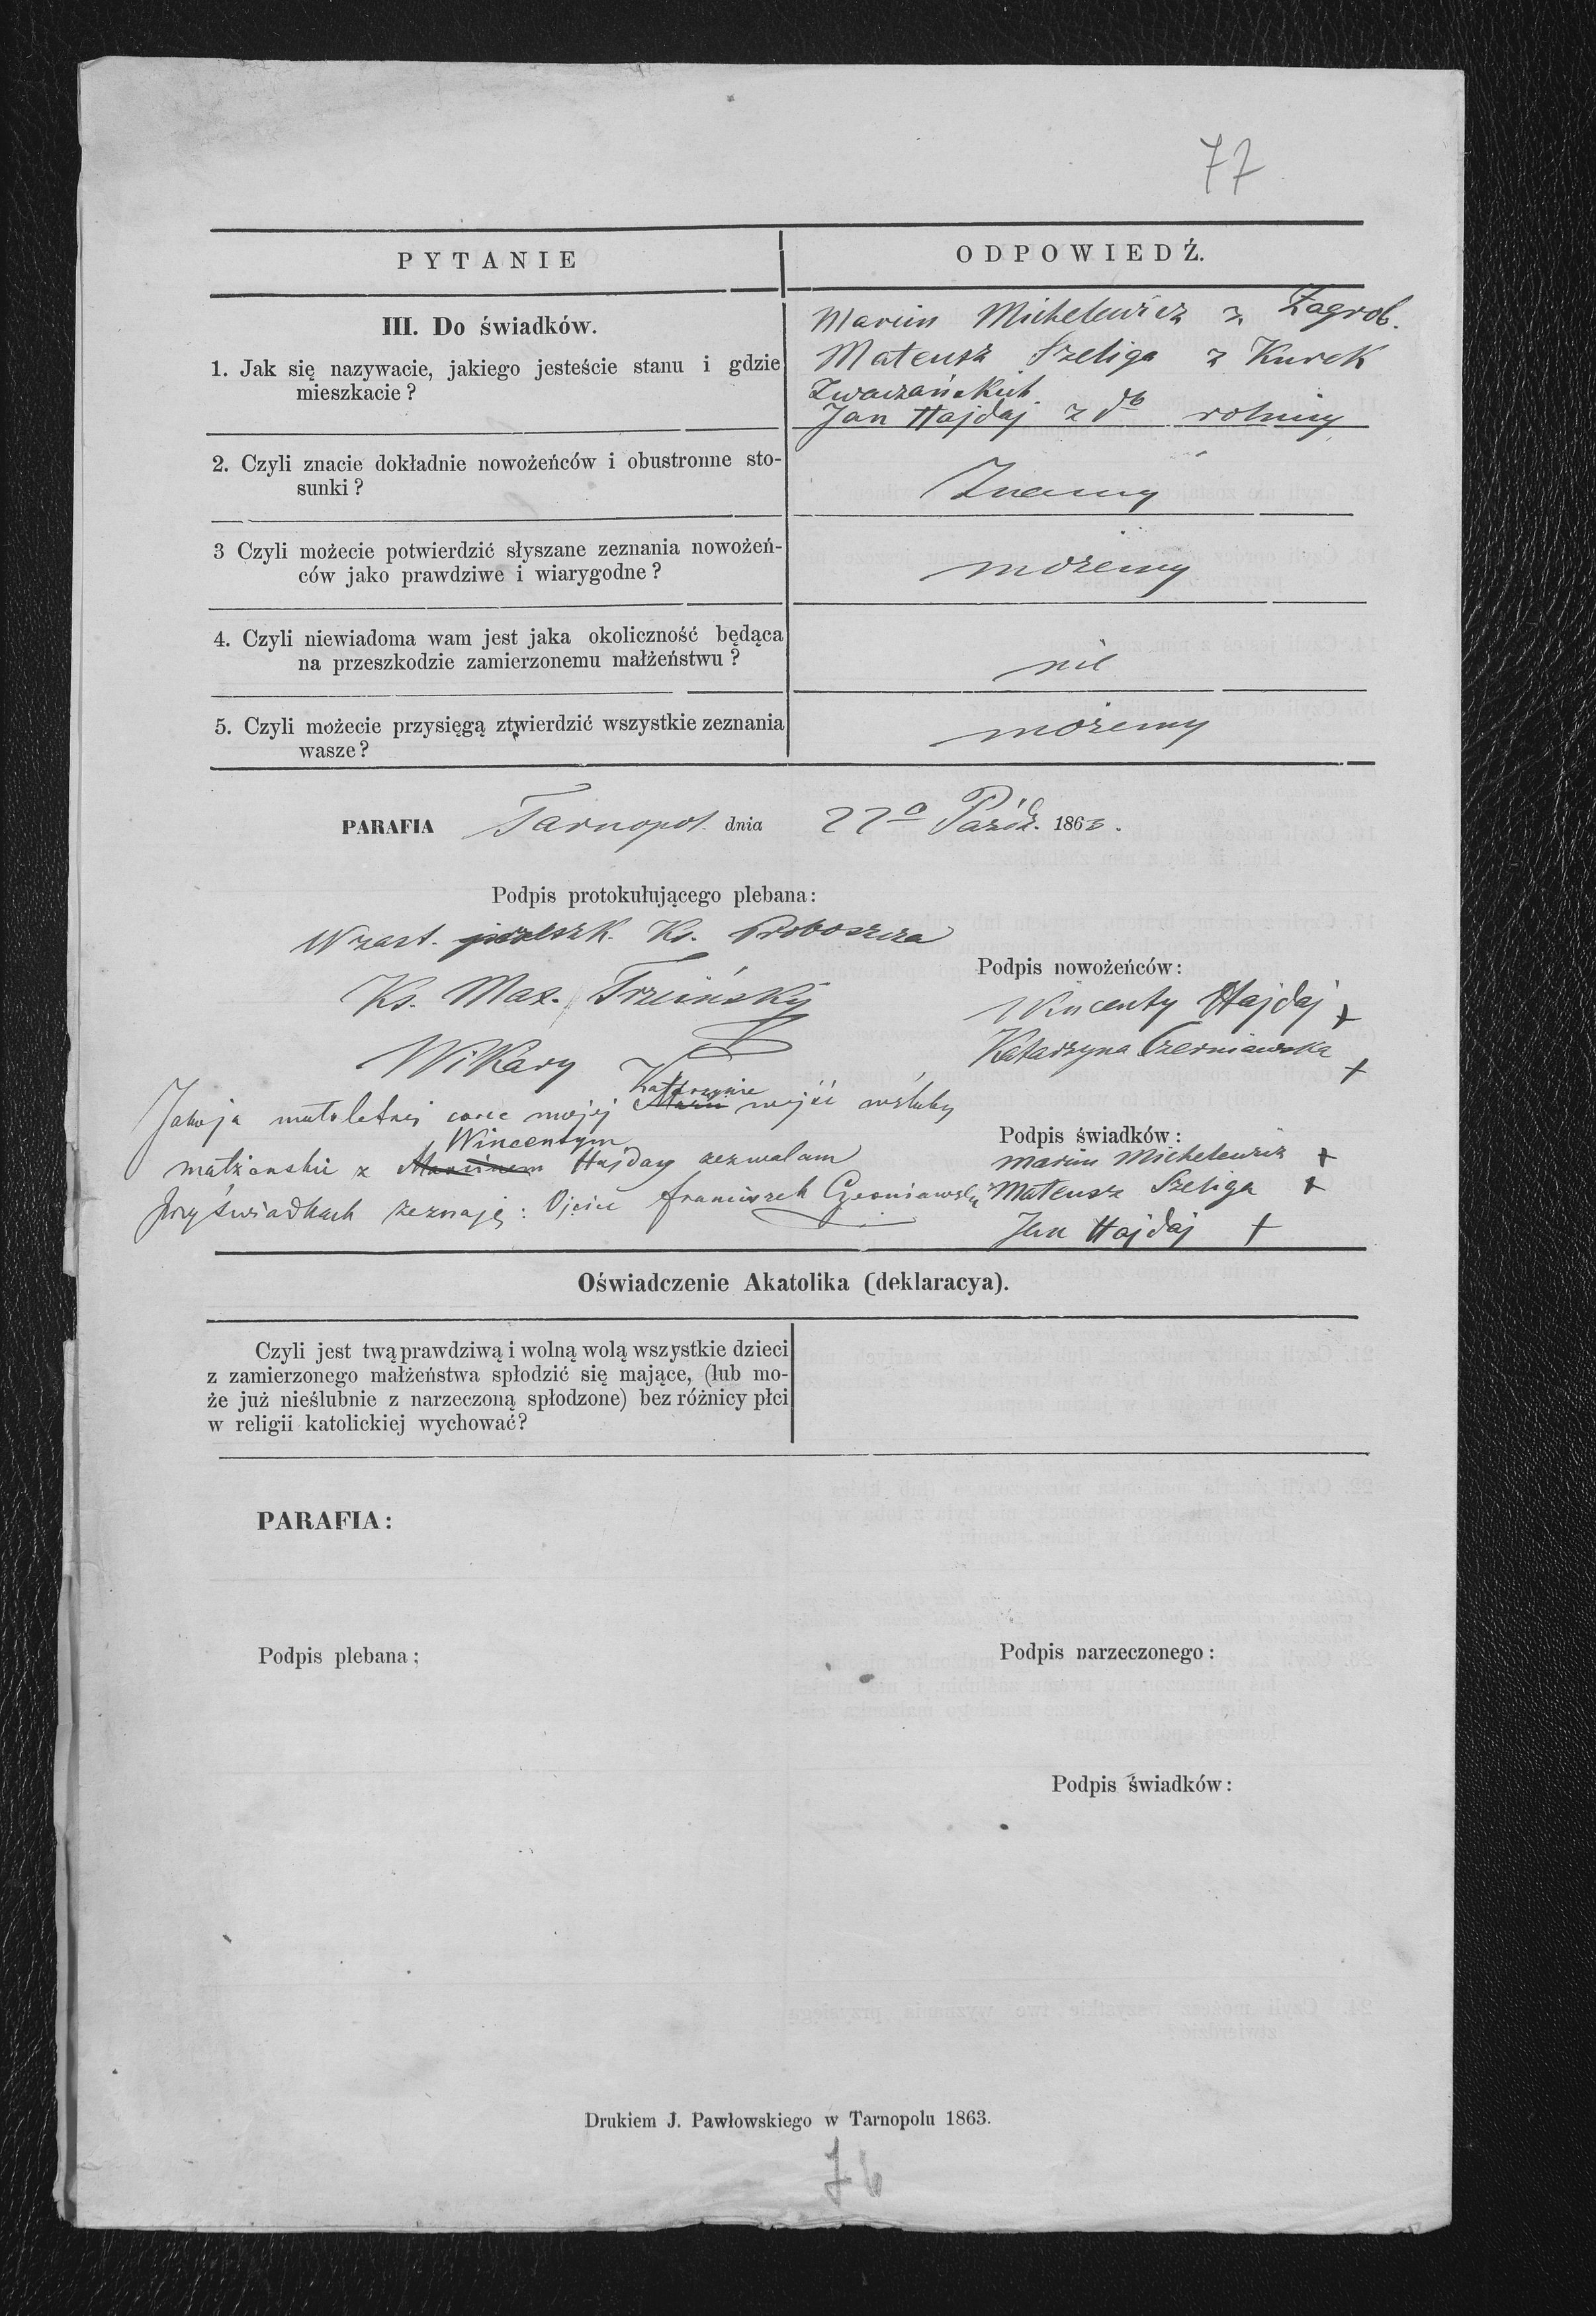 77
PYTANIE
ODPOWIEDŹ.
III. Do świadków.
1. Jak się nazywacie, jakiego jesteście stanu i gdzie
mieszkacie?
Marcin Michelewicz z Zagrob.
Mateusz Szeliga z Kurek
Jan Hajdaj z do rolnicy
2. Czyli znacie dokładnie nowożeńców i obustronne sto-
sunki?
Znamy
3 Czyli możecie potwierdzić słyszane zeznania nowożeń-
ców jako prawdziwe i wiarygodne?
możemy
4. Czyli niewiadoma wam jest jaka okoliczność będąca
na przeszkodzie zamierzonemu małżeństwu?
nie
5. Czyli możecie przysięgą ztwierdzić wszystkie zeznania
wasze?
możemy
PARAFIA Tarnopol. dnia 22o Paźdz. 1863.
Podpis protokułującego plebana:
W zast. Ks. Proboszcza
Ks. Max. Trzciński
Wikary
Podpis nowożeńców:
Wincenty Hajdaj +
Katarzyna Czerniawska +
Katarzynie
Ja małoletniej córce mojej Marii wejść wśluby
Wincentym
małżenskie z Marcinem Hajday zezwalam
przy świadkach zeznaję: Ojciec Franciszek Czerniawski
Podpis świadków:
Marcin Michelewicz +
Mateusz Szeliga +
Jan Hajdaj +
Oświadczenie Akatolika (deklaracya).
Czyli jest twą prawdziwą i wolną wolą wszystkie dzieci
z zamierzonego małżeństwa spłodzić się mające, (lub mo-
że już nieślubnie z narzeczoną spłodzone) bez różnicy płci
w religii katolickiej wychować?
PARAFIA:
Podpis plebana:
Podpis narzeczonego:
Podpis świadków:
Drukiem J. Pawłowskiego w Tarnopolu 1863.
76